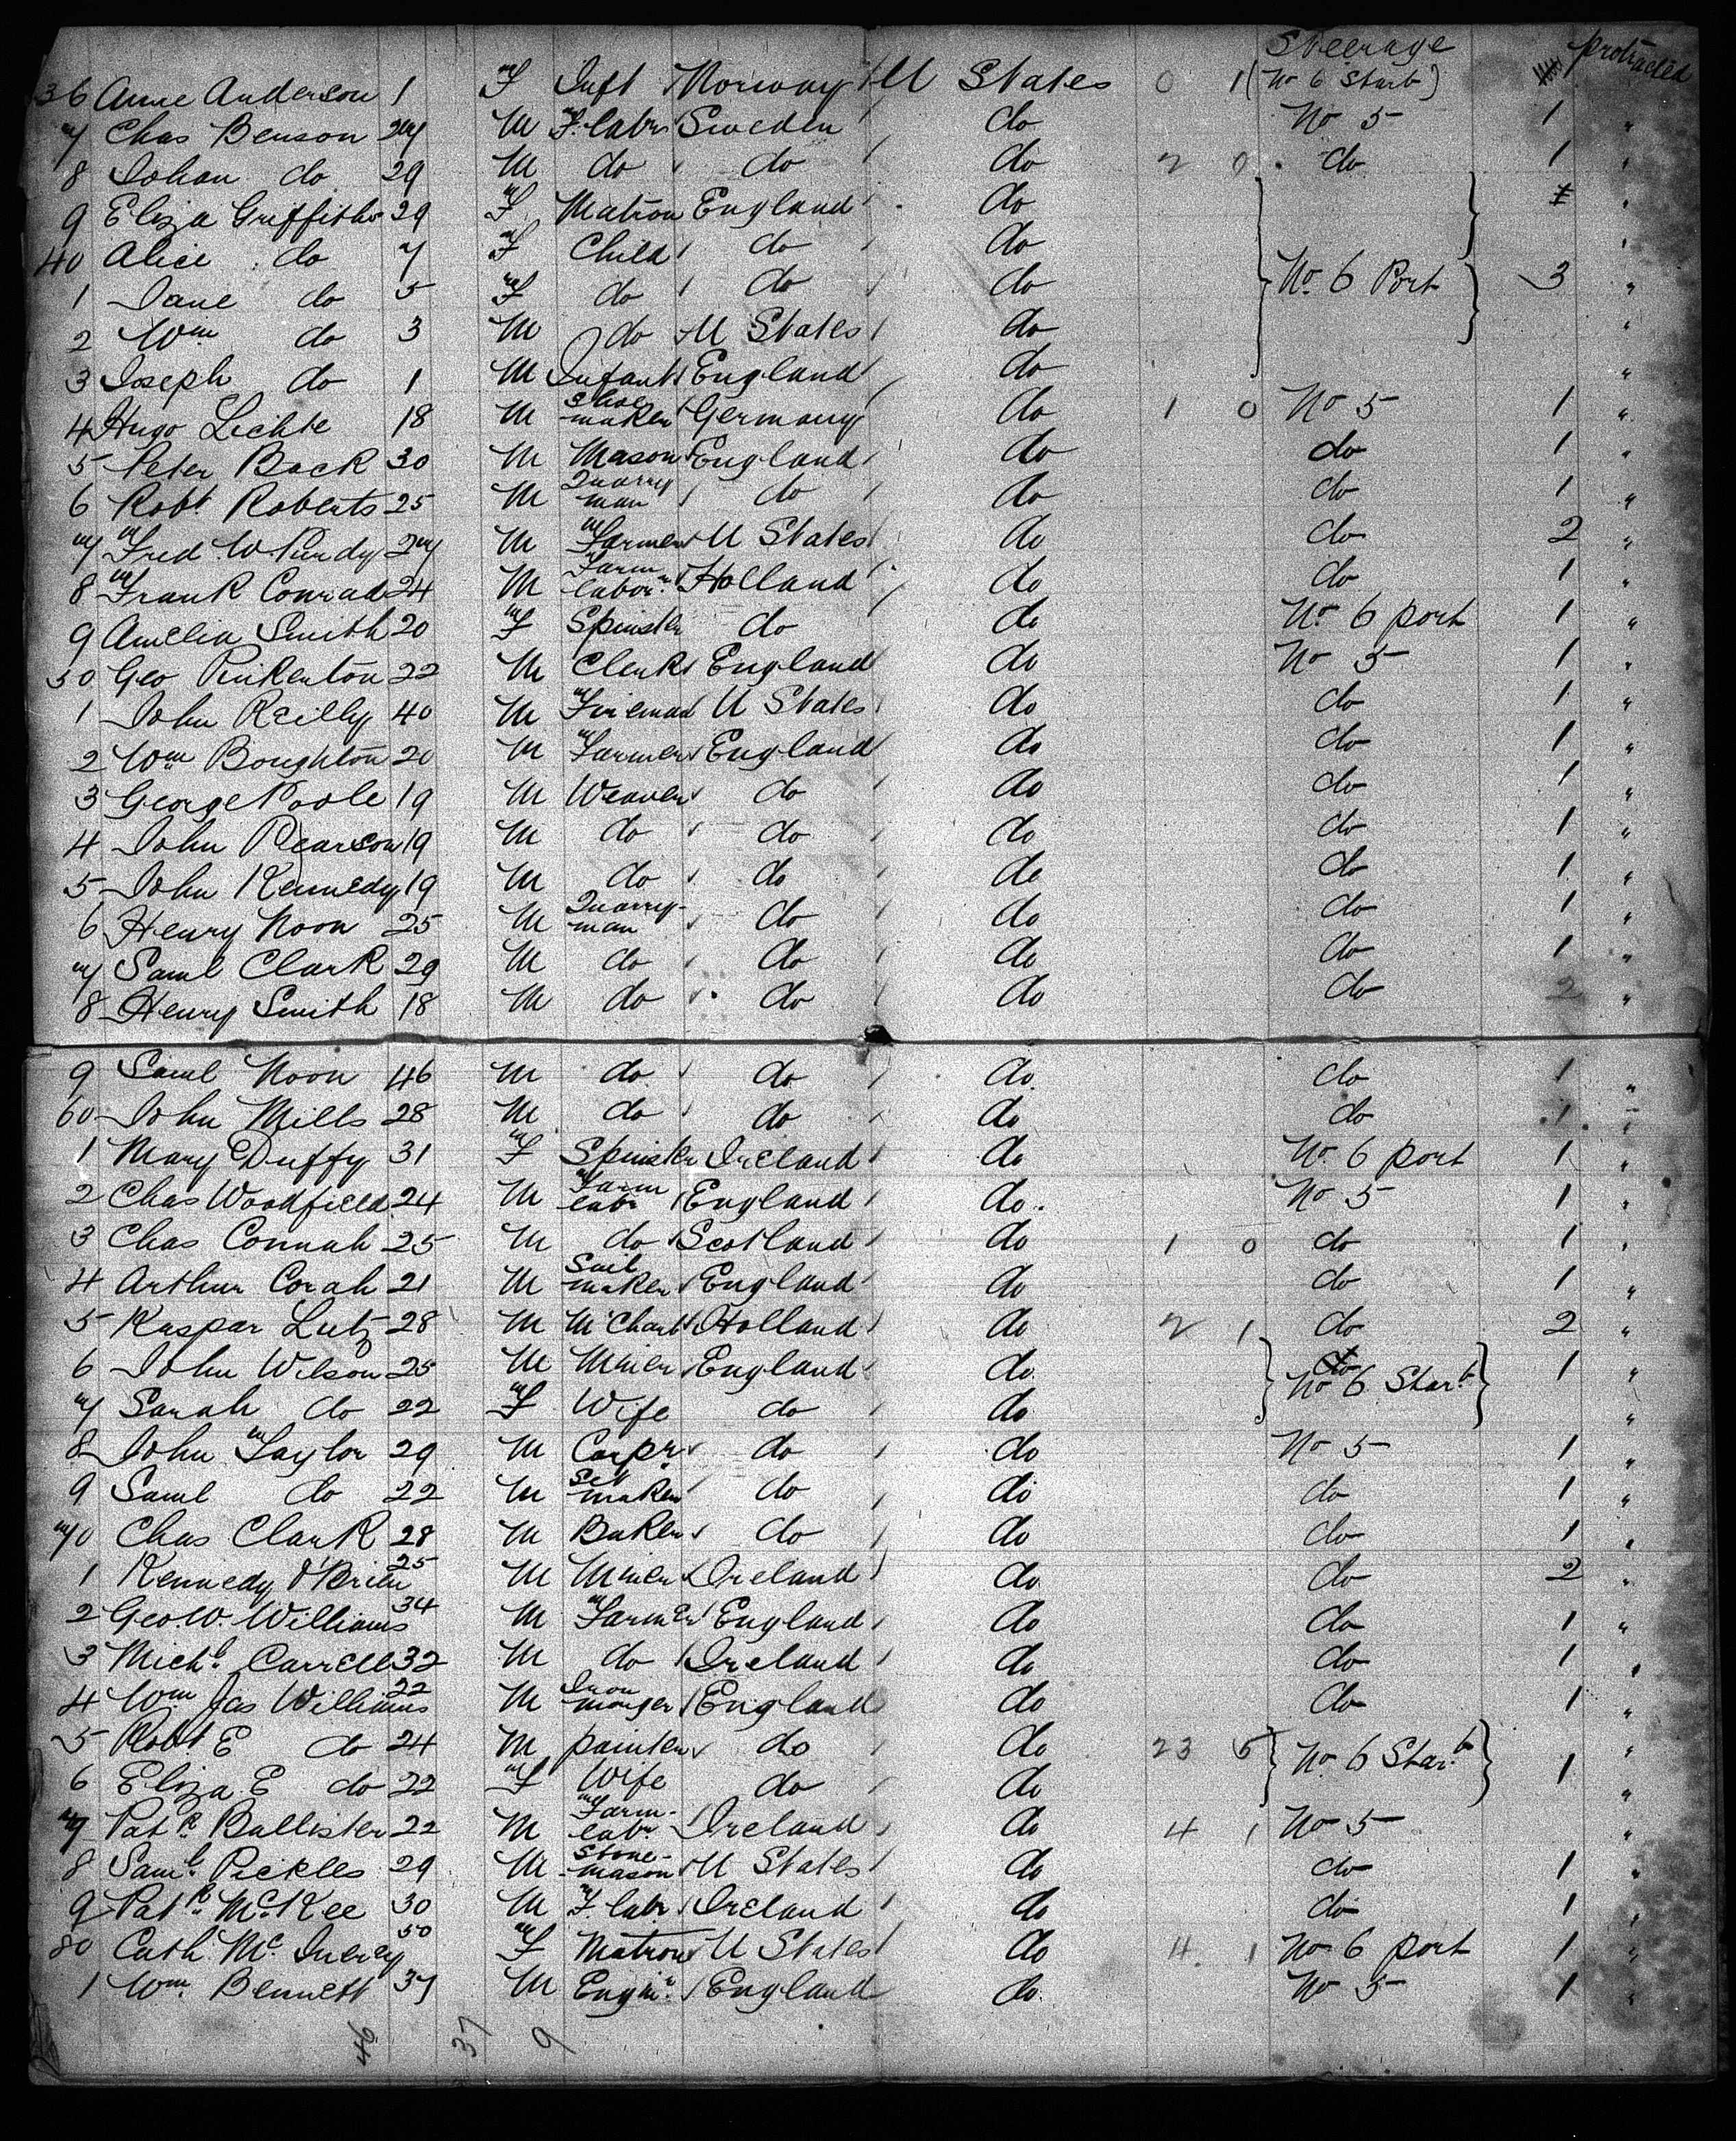 Steerage protracted
36 Anne Anderson 1 F Inft Norway U States 0 1 (No 6 Starb)
7 Chas Benson 27 M F. labr Sweden do No 5 1 "
8 Johan do 29 M do do do 2 0 do 1 "
9 Eliza Griffiths 29 F Matron England do "
40 Alice do 7 F Child do do "
1 Jane do 5 F do do do No 6 Port 3 "
2 Wm do 3 M do U States do "
3 Joseph do 1 M Infant England do "
4 Hugo Lichte 18 M Shoe maker Germany do 1 0 No 5 1 "
5 Peter Back 30 M Mason England do do 1 "
6 Robt Roberts 25 M Quarry man do do do 1 "
7 Fred W Purdy 27 M Farmer U States do do 2 "
8 Frank Conrad 24 M Farm labor. Holland do do 1 "
9 Amelia Smith 20 F Spinster do do No 6 port 1 "
50 Geo Pinkerton 22 M Clerk England do No 5 1 "
1 John Reilly 40 M Fireman U States do do 1 "
2 Wm Boughton 20 M Farmer England do do 1 "
3 George Poole 19 M Weaver do do do 1 "
4 John Pearson 19 M do do do do 1 "
5 John Kennedy 19 M do do do do 1 "
6 Henry Noon 25 M Quarry-man do do do 1 "
7 Saml Clark 29 M do do do do 1 "
8 Henry Smith 18 M do do do do 2 "
9 Saml Noon 46 M do do do do 1 "
60 John Mills 28 M do do do do 1 "
1 Mary Duffy 31 F Spinster Ireland do No 6 port 1 "
2 Chas Woodfield 24 M Farm labr England do. No 5 1 "
3 Chas Connah 25 M do Scotland do 1 0 do 1 "
4 Arthur Corah 21 M Sail maker England do do 1 "
5 Kaspar Lutz 28 M M'Chant Holland do 2 1 do 2 "
6 John Wilson 25 M Miner England do No 6 Starb 1 "
7 Sarah do 22 F Wife do do "
8 John Taylor 29 M Carpr do do No 5 1 "
9 Saml do 22 M Set maker do do do 1 "
70 Chas Clark 28 M Baker do do do 1 "
1 Kennedy O'Brien 25 M Miner Ireland do do 2 "
2 Geo. W. Williams 34 M Farmer England do do 1 "
3 Michl Carrell 32 M do Ireland do do 1 "
4 Wm Jas Williams 22 M Iron monger England do do 1 "
5 Robt E do 24 M painter do do 23 5 No 6 Starb "
6 Eliza E do 22 F Wife do do 1 "
7 Patk Ballister 22 M Farm-labr Ireland do 4 1 No 5 "
8 Saml Pickles 29 M Stone-mason U States do do 1 "
9 Patk McKee 30 M F labr Ireland do do 1 "
80 Cath Mc 50 F Matron U States do 4 1 No 6 port 1 "
1 Wm. Bennett 37 M Enginr England do. No 5 1 "
46 37 9